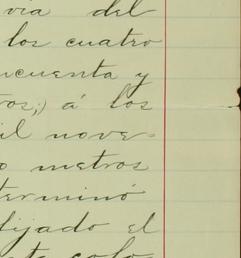 via del
los cuatro
ncuenta y
ros,) á los
il nove-
o metros
terminó
fijado el